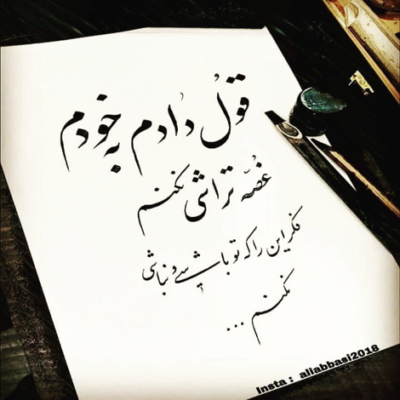 قولُ دادم به خودم
غصّه تراشی نکنم
فکر این را که تو باشی و نباشی
نکنم ...
Insta : aliabbasi2018